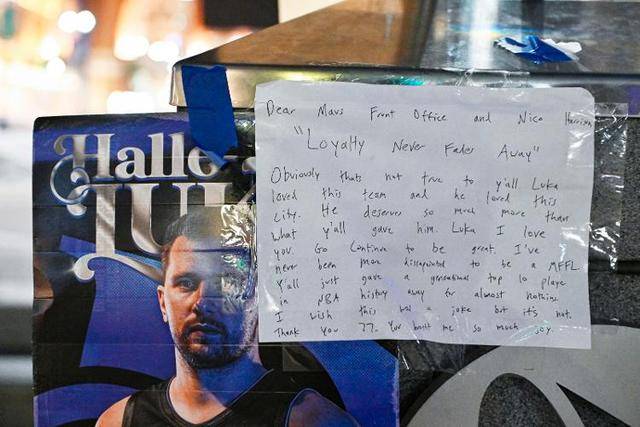 Hallo-
LUK
Dear Mavs Front Office and Nico Harrison
"Loyalty Never Fades Away"
Obviously thats not true to y'all Luka
loved this team and he loved this
city. He deserves so much more than
what y'all gave him. Luka I love
you. Go Continue to be great. I've
never been more dissapointed to be a MFFL
Y'all just gave a generational top 10 playe
in NBA history away for almost nothing
I wish this was a joke but it's not.
Thank you 77. You built me so much joy.